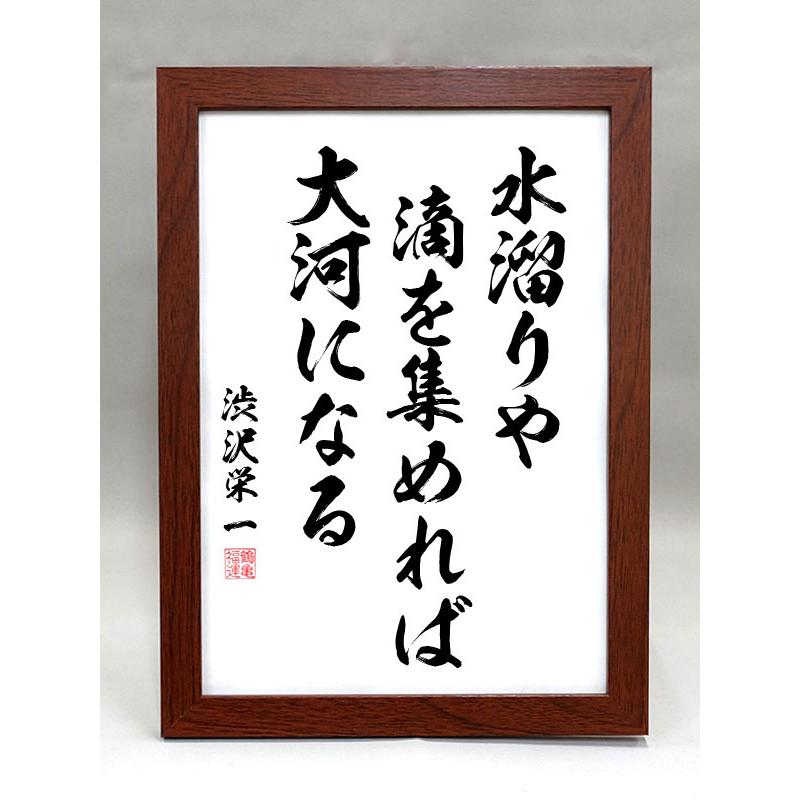 水溜りや
滴を集めれば
大河になる
渋沢栄一
鶴亀
福運